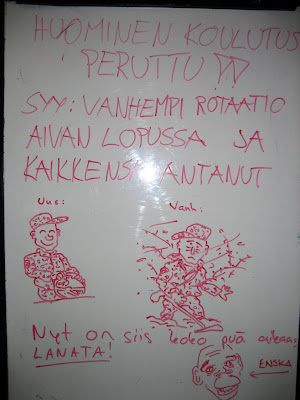 HUOMINEN KOULUTUS
PERUTTU
SYY: VANHEMPI ROTAATIO
AIVAN LOPUSSA JA
KAIKKENSA ANTANUT
Uus: Vanh:
Nyt on siis koko
LANATA!
ENSKA